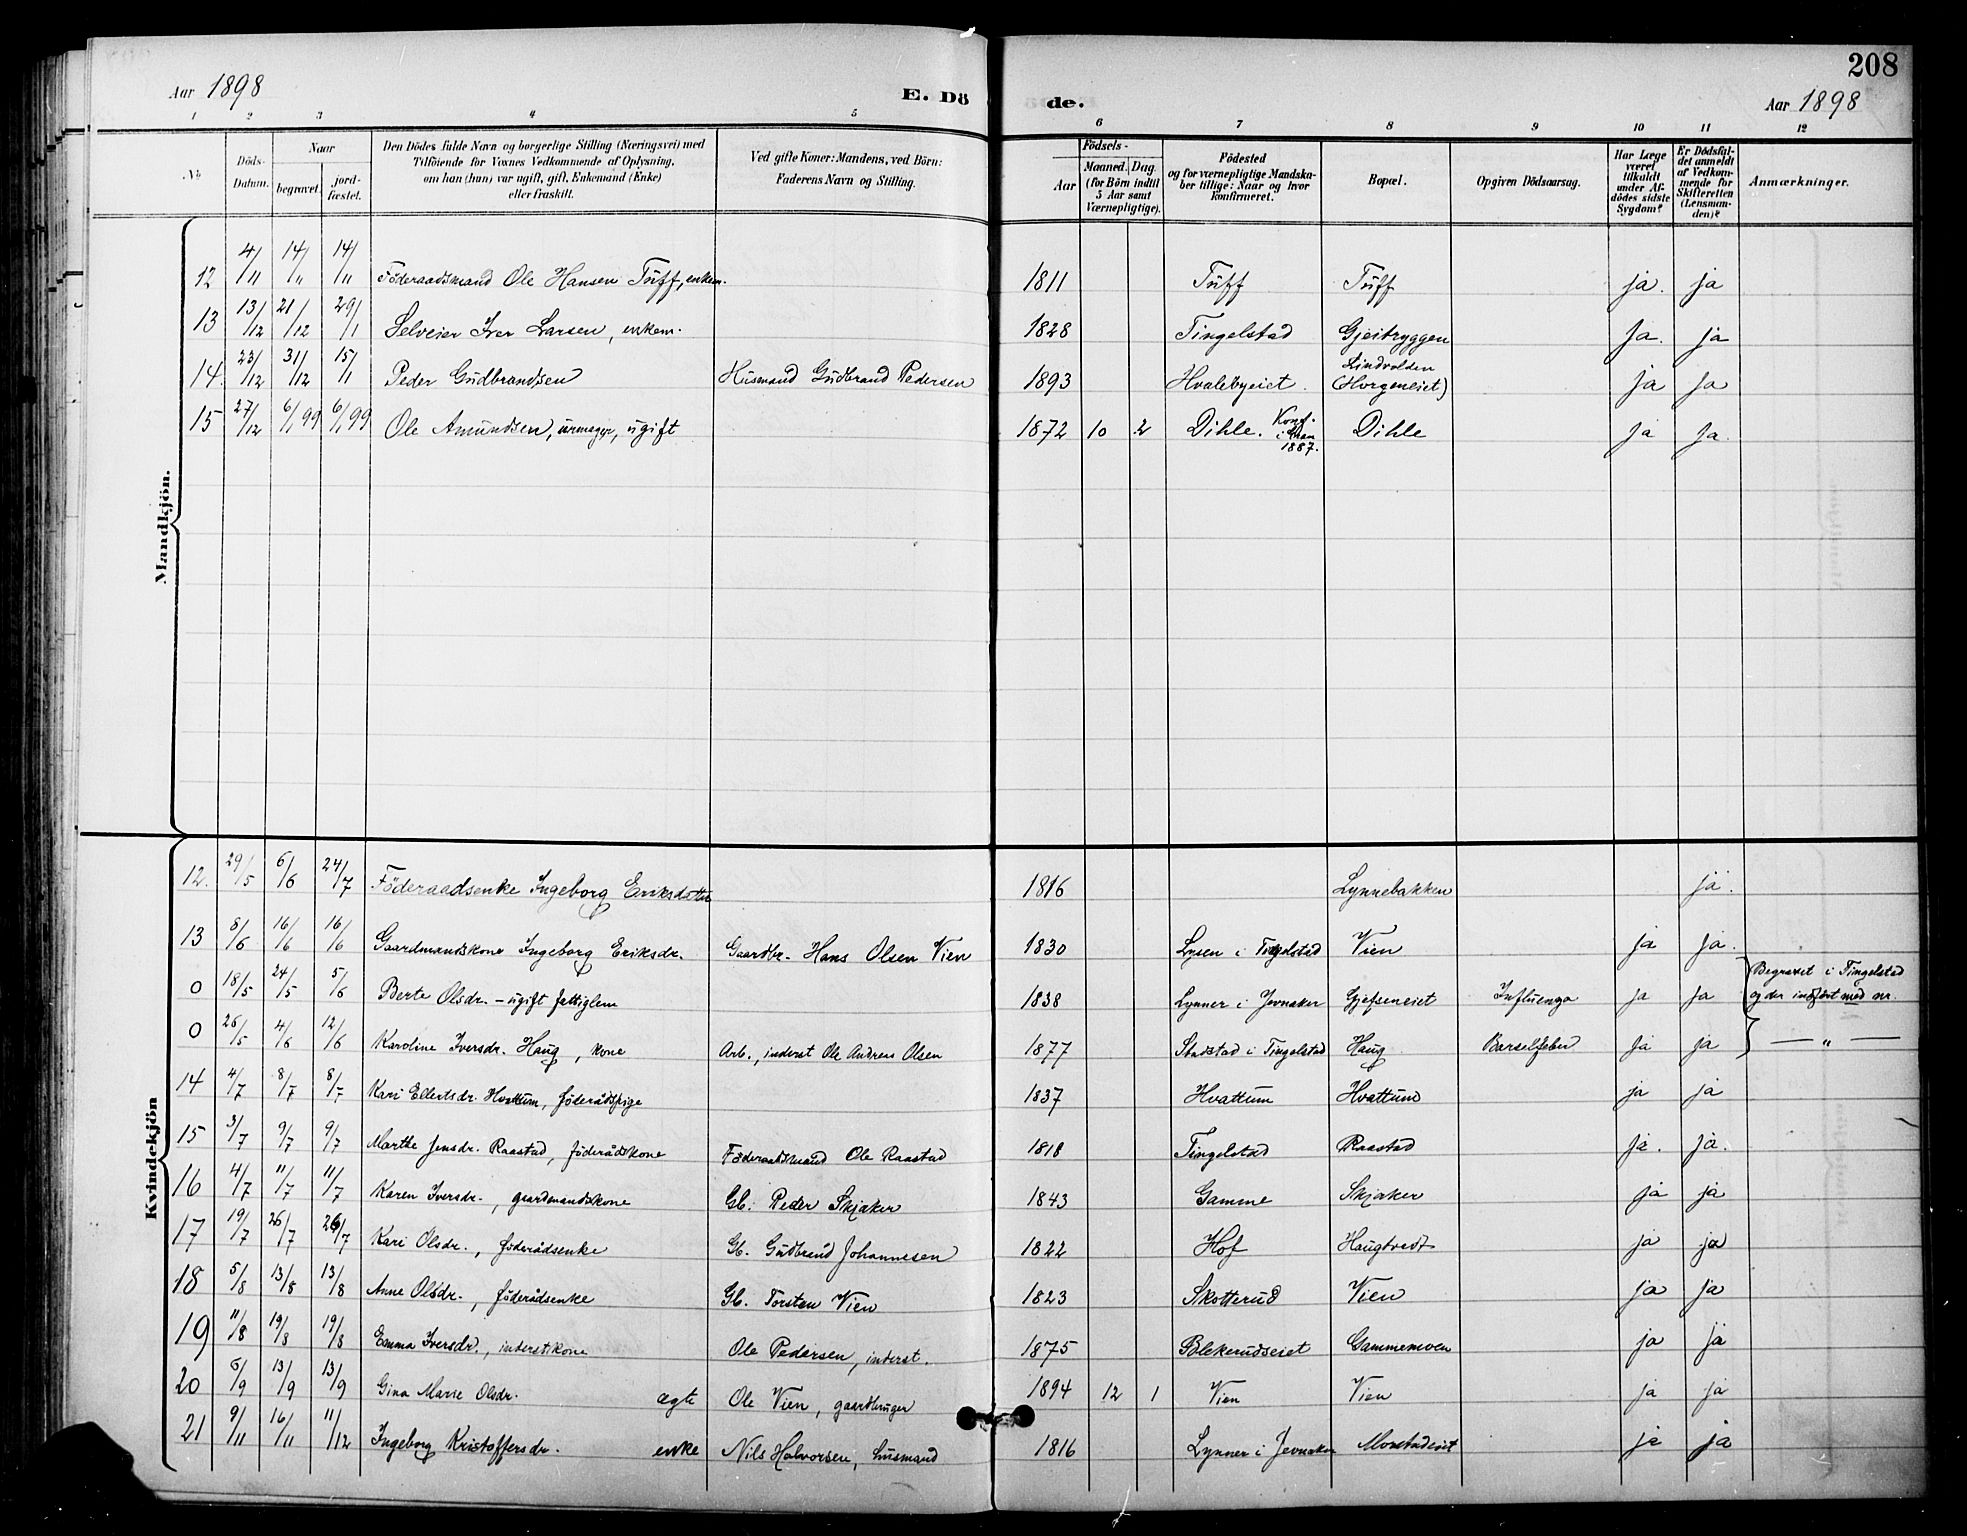 208
Aar 1898 E. Dö de. Aar 1898
1 2 3 4 5 6 7 8 9 10 11 12
No
Döds-Datum.
Naar
begravet.
jord-fæstet.
Den Dödes fulde Navn og borgerlige Stilling (Næringsvei) med
Tilföiende for Voxnes Vedkommende af Oplysning,
om han (hun) var ugift, gift, Enkemand (Enke)
eller fraskilt.
Ved gifte Koner: Mandens, ved Börn:
Faderens Navn og Stilling.
Födsels-
Aar
Maaned. Dag.
(for Börn indtil
5 Aar samt
Værnepligtige).
Födested
og for værnepligtige Mandska-
ber tillige: Naar og hvor
konfirmeret.
Bopæl.
Opgiven Dödsaarsag.
Har Læge
været
tilkaldt
under Af-
dödes sidste
Sygdom?
Er Dödsfal-
det anmeldt
af Vedkom-
mende for
Skifteretten
(Lensman-
den)?
Anmærkninger.
Mandkjön.
12 4/11 14/11 14/11 Föderaadsmand Ole Hansen Tüff, enkem. 1811 Tüff Tüff ja. ja
13 13/12 21/12 29/1 Selveier Iver Larsen, enkem. 1828 Tingelstad Gjeibryggen ja. ja
14. 23/12 31/12 15/1 Peder Gudbrandsen Husmand Gudbrand Pedersen 1893 Hvalebyeiet. Lindvolden (Horgeneiet) ja ja
15 27/12 6/1 99 6/1 99 Ole Amundsen, urmager, ugift 1872 10 2 Dihle. Konf. i Gran 1887. Dihle ja ja.
Kvindekjön
12. 29/5 6/6 24/7 Föderaadsenke Ingeborg Eriksdatter 1816 Lynnebakken ja.
13 8/6 16/6 16/6 Gaardmandskone Ingeborg Eriksdr. Gaardbr. Hans Olsen Vien 1830 Lysen i Tingelstad Vien ja ja.
0 18/5 24/5 5/6 Berte Olsdr. - ugift fattiglem 1838 Lynner i Jevnaker Gjefseneiet Influenza ja ja Begravet i Tingelstad og der indført med nr.
0 26/5 4/6 12/6 Karoline Iversdr. Haug, kone Arb., inderst Ole Andreas Olsen 1877 Stadstad i Tingelstad Haug Barselfeber ja ja — „ —
14 4/7 8/7 8/7 Kari Ellertsdr. Hvattum, føderådspige 1837 Hvattum Hvattum ja ja
15 3/7 9/7 9/7 Marthe Jensdr. Raastad, føderådskone Föderaadsmand Ole Raastad 1818 Tingelstad Raastad ja. ja.
16 4/7 11/7 11/7 Karen Iversdr., gaardmandskone Gb. Peder Skjaker 1843 Gamme Skjaker ja ja
17 19/7 26/7 26/7 Kari Olsdr., føderådsenke Gb. Gudbrand Johannesen 1822 Hof Haugtvedt ja ja
18 5/8 13/8 13/8 Anne Olsdr., føderådsenke Gb. Torsten Vien 1823 Skotterud Vien ja ja
19 11/8 19/8 19/8 Emma Iversdr., inderstkone Ole Pedersen, inderst. 1875 Blekerudseiet Gammemoen ja ja
20 6/9 13/9 13/9 Gina Marie Olsdr. ægte Ole Vien, gaardbruger 1894 12 1 Vien Vien ja ja
21 9/11 16/11 11/12 Ingeborg Kristoffersdr. enke Nils Halvorsen, husmand 1816 Lynner i Jevnaker ja ja